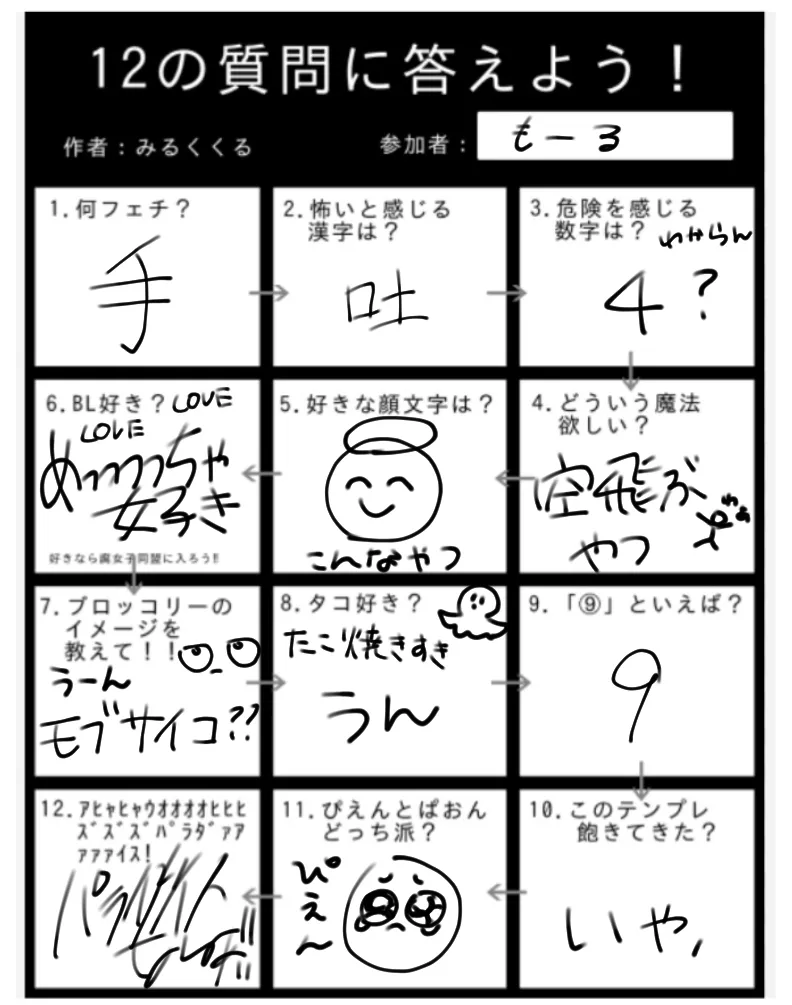 12の質問に答えよう！
作者：みるくくる
参加者：
もーる
1.何フェチ？
手
2.怖いと感じる
漢字は？
吐
3.危険を感じる
数字は？
わからん
4？
4.どういう魔法
欲しい？
空飛ぶ
やつ
5.好きな顔文字は？
こんなやつ
6.BL好き？
LOVE
LOVE
めっっっっちゃ
好き
好きなら腐女子同盟に入ろう!!
7.ブロッコリーの
イメージを
教えて！！
うーん
モブサイコ??
8.タコ好き？
たこ焼きすき
うん
9.「⑨」といえば？
9
10.このテンプレ
飽きてきた？
いや、
11.ぴえんとぱおん
どっち派？
ぴえん
12.ｱﾋｬﾋｬｳｵｵｵｵﾋﾋﾋ
ｽﾞｽﾞｽﾞﾊﾟﾗﾀﾞｧｱ
ｧｧｧｲｽ!